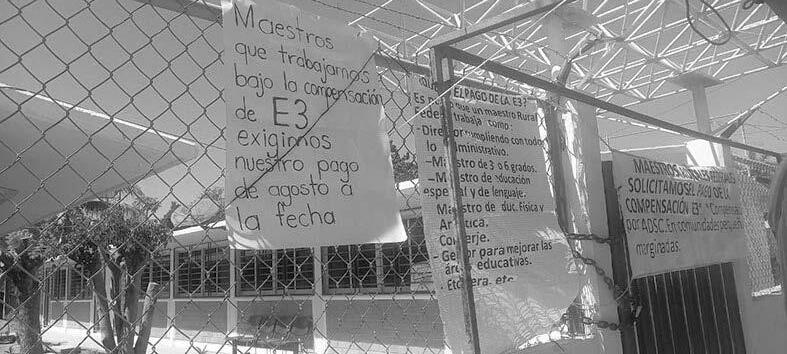 Maestros
que trabajamos
bajo la compensación
de E3
exigimos
nuestro pago
de agosto a
la fecha
EL PAGO DE LA E3?
que un maestro Rural
trabaja como:
cumpliendo con todo
lo administrativo.
-Maestro de 3 o 6 grados.
-Maestro de educación
especial y de lenguaje.
Maestro de Educ. Física y
Conserje.
-Gestor para mejorar las
áreas educativas.
-Etcétera, etc.
MAESTROS
SOLICITAMOS EL PAGO DE LA
COMPENSACIÓN E3
por ADSC. En comunidades
marginadas.